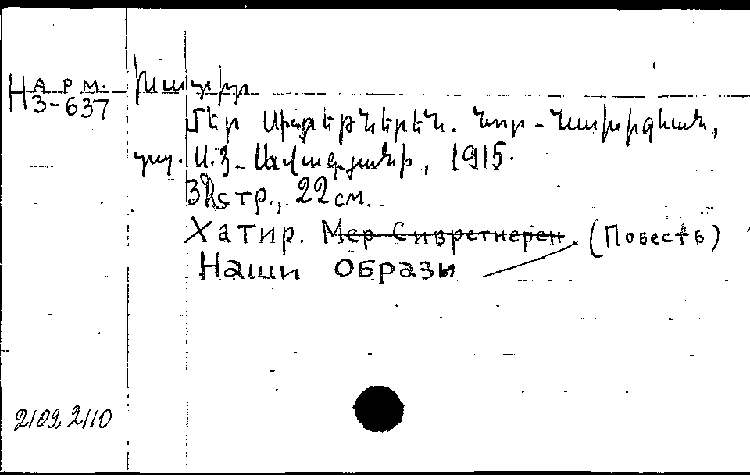 На р м.
3-637
Խատիր
Մեր                                       Նոր-Նախիջևան,
տպ. Ս. Յ. Ավագյանի, 1915.
32 стр., 22 см.
Хатир. Мер Сивретнерен. (Повесть)
Наши образы
2109, 2110